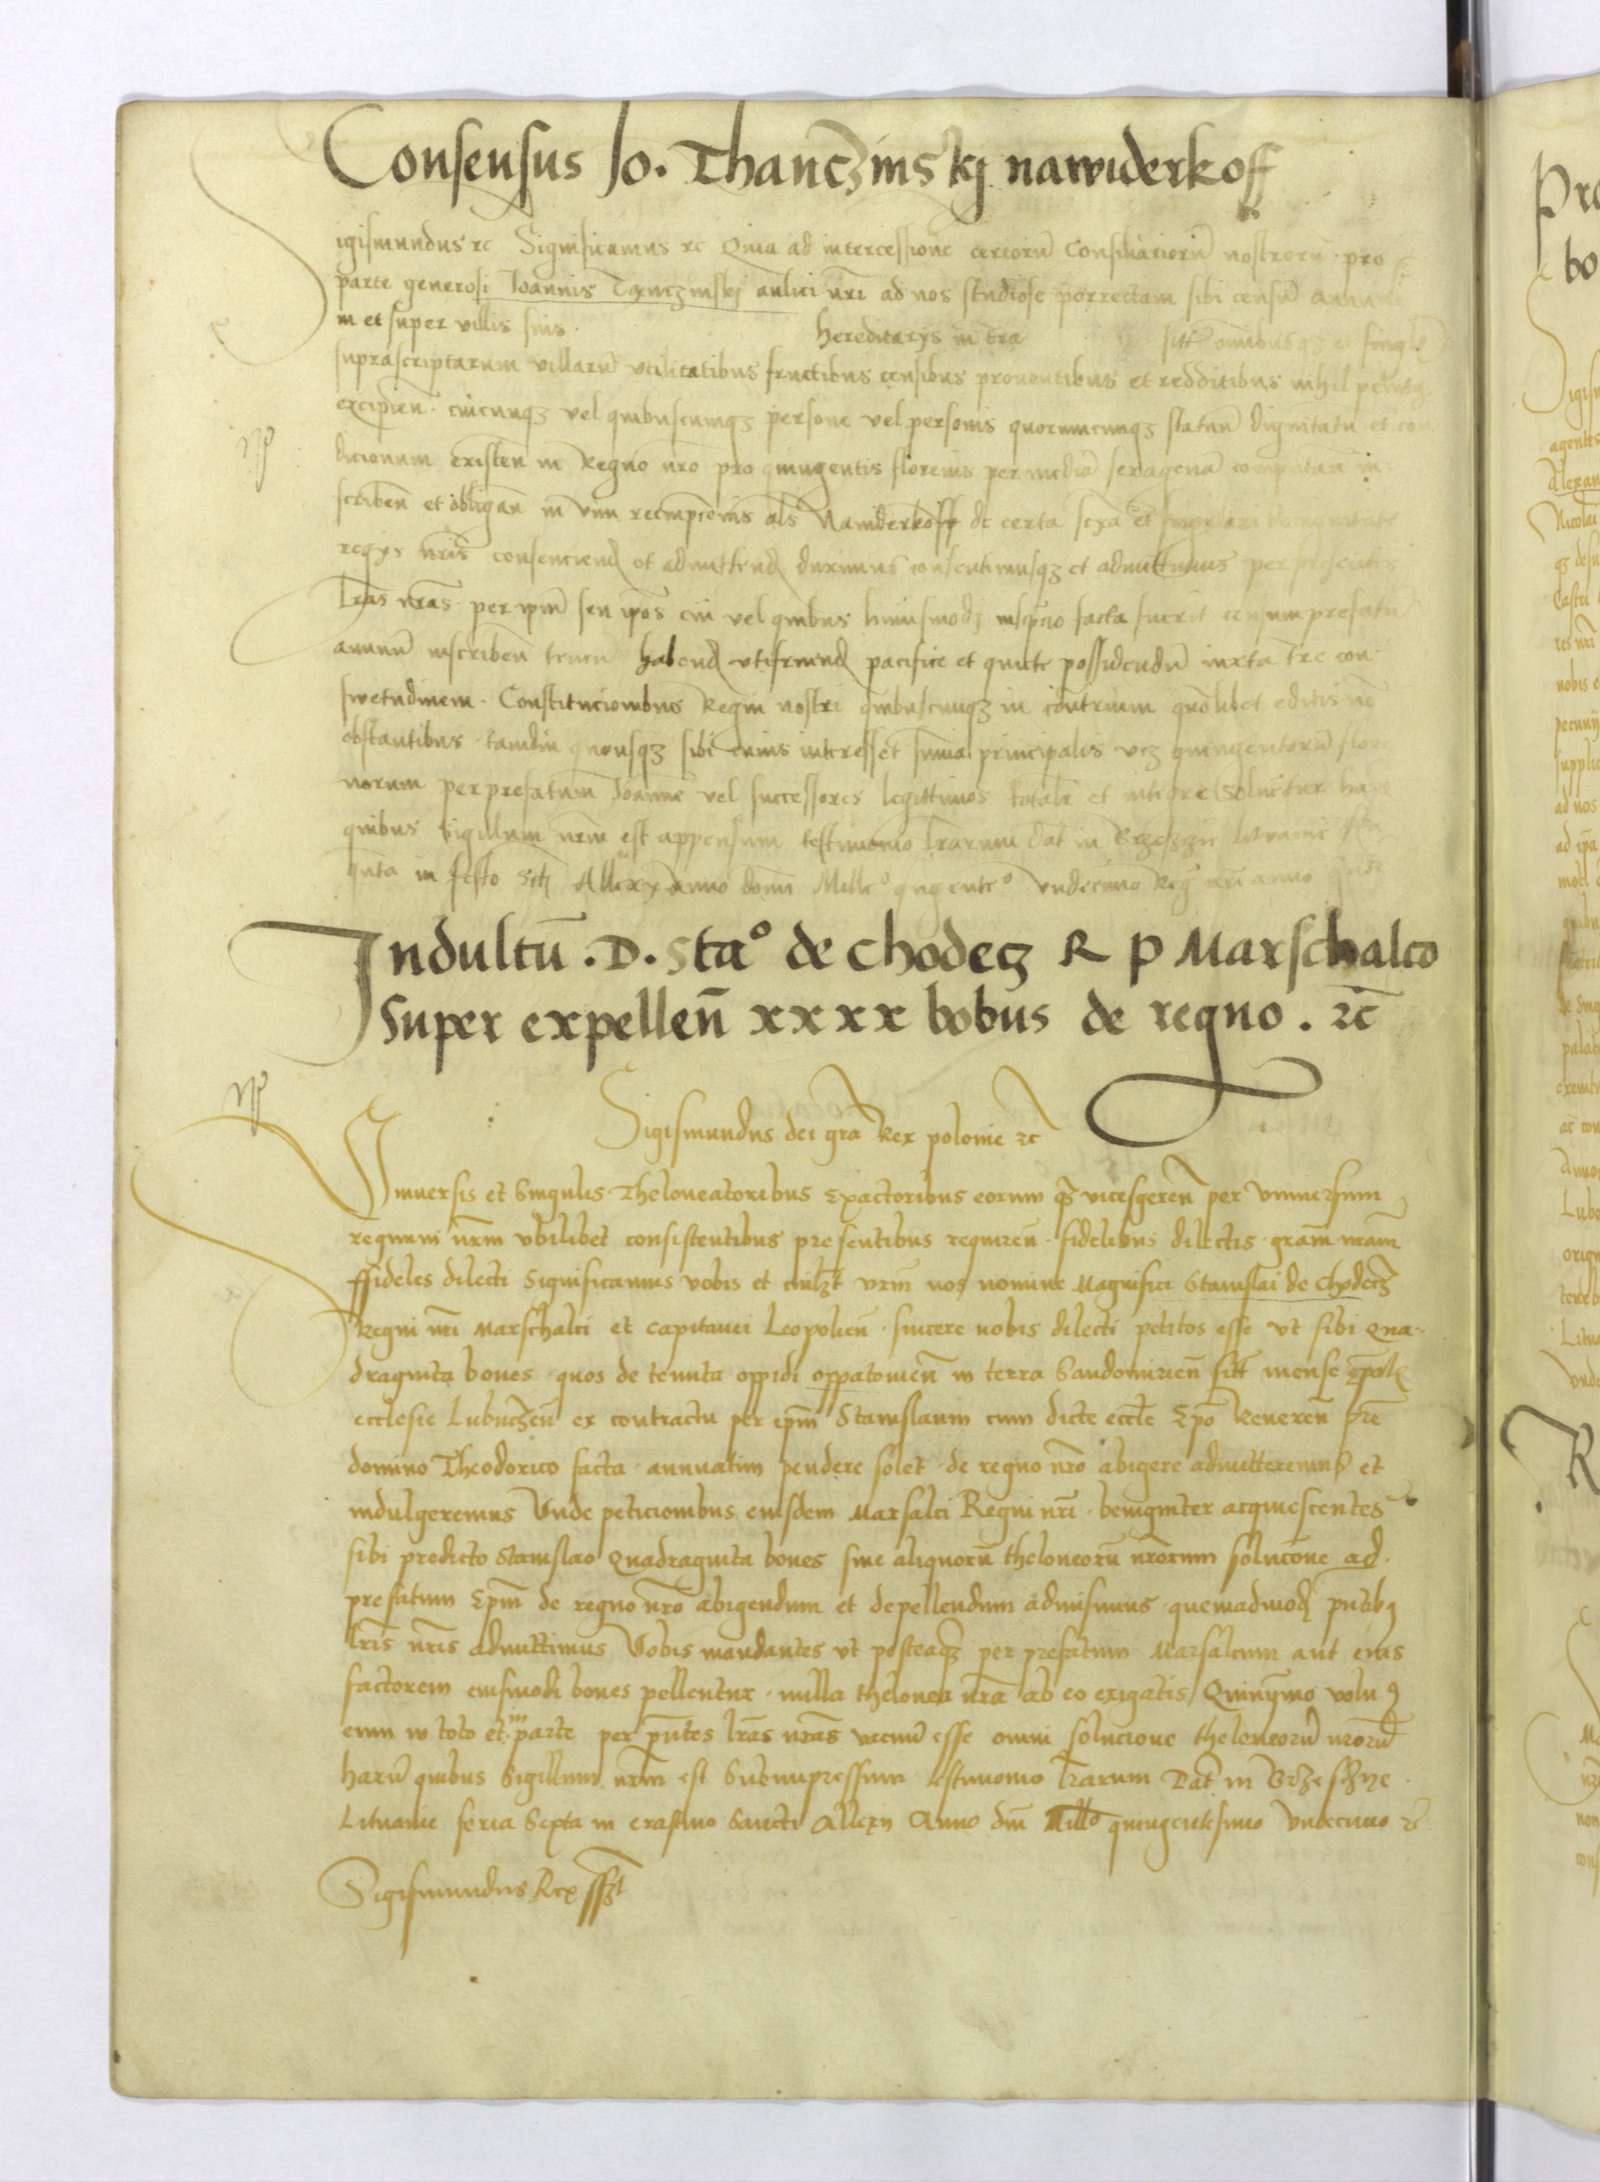 Consensus Jo. Thanczinskj nawiderkoff
Sigismundus rc Significamus rc Quia ad intercessionē certorū Consiliariorū nostrorū pro
parte generosi Joannis Tanczinskj aulici nr̄i ad nos studiose porrectam sibi censū annuū
in et super villis suis hereditarijs in tr̄a sitt̄ omnibusqz et singul̄
suprascriptarum villarū vtilitatibus fructibus censibus prouentibus et redditibus nihil penitꝰ
excipien̄ cuicunqz vel quibuscunqz persone vel personis quorumcunqz statuū dignitatū et con
dicionum existen̄ in Regno nr̄o pro quingentis florenis per mediā sexagenā computan̄ in
scriben̄ et obligan̄ in vim reempcōnis al̄s Nawiderkoff de certa scīa et
regijs nr̄is consenciend̄ et admittend̄ duximus consentimusqz et admittimus per presentes
l̄ras nr̄as per ip̄m seu ip̄os cui vel quibus huiusmodj inscrip̄cio facta fuerit censum prefatū
annuū inscriben̄ tenen̄ habend̄ vtifruend̄ pacifice et quiete possidendū iuxta tr̄e con
swetudinem. Constitucionibus Regni nostri quibuscunqz in contrarium quōlibet editis nō
obstantibus tamdiu quousqz sibi cuius interesset sum̄a principalis vcz quingentorū flore
norum per prefatum Joannē vel successores legittimos total̄r et integre soluetur har̄
quibus sigillum nr̄m est appensum testimonio l̄rarum Dat̄ in Brzesczie Lituanie feria
quīta in festo Sct̄i Allexy Anno domī Mill̄o qngentē o vndecimo Reg̅ nr̄i anno quī
Indultū. D. Sta° de Chodecz R P Marschalco
Super expellen̄ xxxx bobus de regno. rc̄
Sigismundus dei gr̄a Rex polonie rc̄
Vniuersis et Singulis Theloneatoribus Exactoribus eorumqz vicesgeren̄ per vniuersum
regnum nr̄m vbilibet consistentibus presentibus requiren̄ fidelibus dilectis gr̄am nr̄am
ffideles dilecti Significamus vobis et cuil̄zt vr̄m nos nomine Magnifici Stanislai de Chodecz
Regni nr̄i Marschalci et capitanei Leopolien̄ sincere nobis dilecti petitos esse vt sibi qua-
draginta boues quos de tenuta oppidi oppatouien̄ in terra Sandomirien̄ sitt̄ mense ep̄pal̄
ecclesie Lubuczen̄ ex contractu per ip̄m Stanislaum cum dicte eccl̄e Ep̄o Reueren̄ pr̄e
domino Theodorico facta annuatim pendere solet de regno nr̄o abigere admitteremus et
indulgeremus Vnde peticionibus eiusdem Marsalci Regni nr̄i benigniter acquiescentes
sibi predicto Stanislao quadraginta boues sine aliquorū theloneorū nr̄orum solucōne ad
prefatum Ep̄m de regno nr̄o abigendum et depellendum admisimus quemadmodū pn̄tibꝯ
l̄ris nr̄is admittimus Vobis mandantes vt posteaqz per prefatum Marsalcum aut eius
factorem eiusmodi boues pellentur nulla thelonea nr̄a ab eo exigatis, Quinymo volumꝯ
eum in toto et in parte per pn̄tes l̄ras nr̄as vacuū esse omni solucione theleneorū nr̄orū
harū quibus Sigillum nr̄m est Subimpressum testimonio l̄rarum Dat̄ in Brzesczye
Lituanie feria Sexta in crastino Sancti Allexy Anno dn̄i Mill̄o quingentesimo vndecimo rc̄
Sigismundus Rex sszt